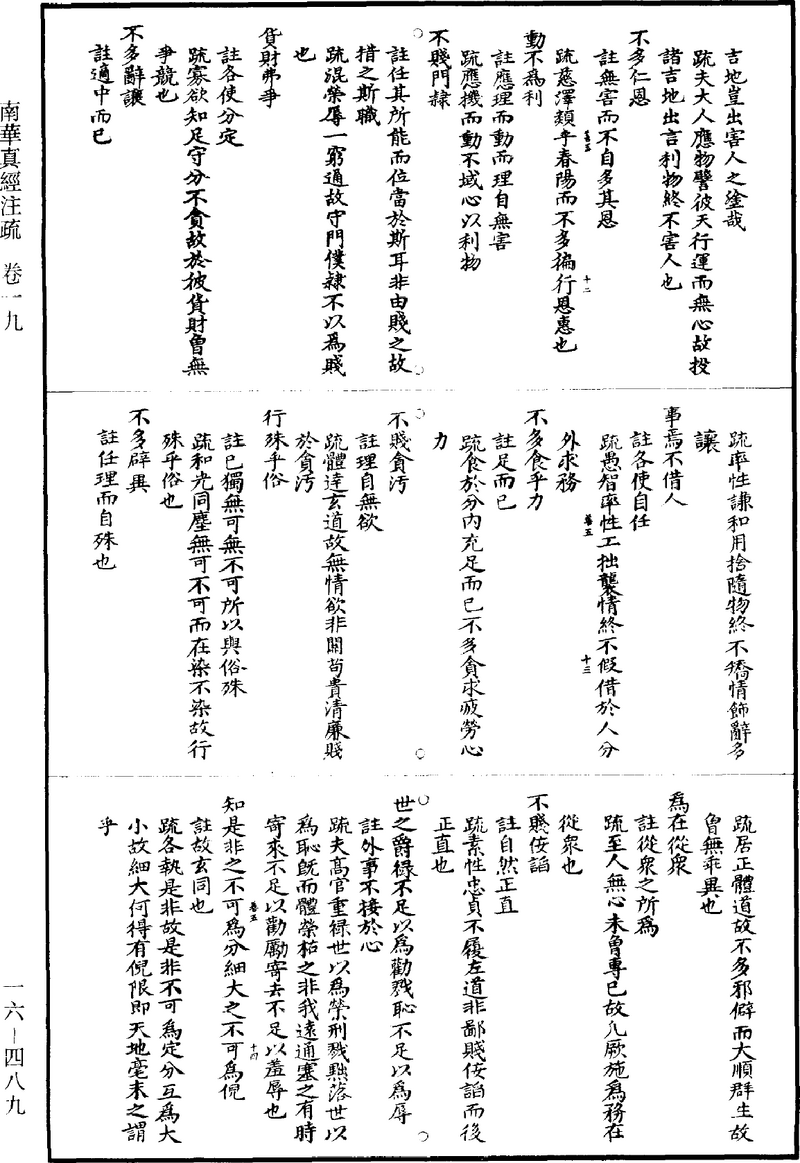 吉地豈出害人之塗哉
疏夫大人應物譬彼天行運而無心故投
諸吉地出言利物終不害人也
不多仁恩
註無害而不自多其恩
疏慈澤類乎春陽而不多徧行恩惠也
動不為利
註應理而動而理自無害
疏應機而動不域心以利物
不賤門隸
註任其所能而位當於斯耳非由賤之故
措之斯職
疏混榮辱一窮通故守門僕隸不以為賤
也
貨財弗爭
註各使分定
疏寡欲知足守分不貪故於彼貨財曾無
爭競也
不多辭讓
註適中而已
疏率性謙和用捨隨物終不矯情飾辭多
讓
事焉不借人
註各使自任
疏愚智率性工拙襲情終不假借於人分
外求務
不多食乎力
註足而已
疏食於分內充足而已不多貪求疲勞心
力
不賤貪污
註理自無欲
疏體達玄道故無情欲非關苟貴清廉賤
於貪污
行殊乎俗
註已獨無可無不可所以與俗殊
疏和光同塵無可不可而在染不染故行
殊乎俗也
不多辟異
註任理而自殊也
疏居正體道故不多邪僻而大順群生故
曾無乖異也
為在從眾
註從眾之所為
疏至人無心未曾專已故凡厥施為務在
從眾也
不賤佞諂
註自然正直
疏素性忠貞不履左道非鄙賤佞諂而後
正直也
世之爵祿不足以為勸戮恥不足以為辱
註外事不接於心
疏夫高官重祿世以為榮刑戮黜落世以
為恥既而體榮枯之非我達通塞之有時
寄來不足以勸勵寄去不足以羞辱也
知是非之不可為分細大之不可為倪
註故玄同也
疏各執是非故是非不可為定分互為大
小故細大何得有倪限即天地毫末之謂
乎
卷五
十二
卷五
十三
卷五
十四
南華真經注疏 卷一九
一六—四八九